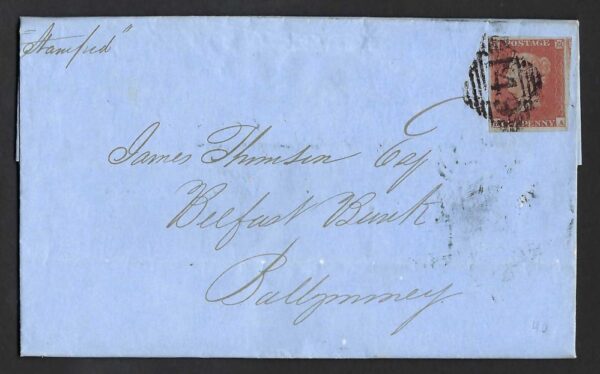 "Stamped"
POSTAGE
PENNY
A
James Thomson Esq
Belfast Bank
Ballymoney